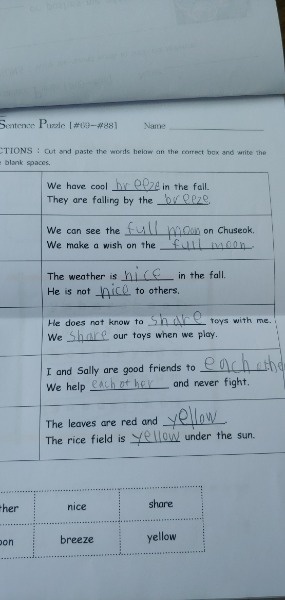 Sentence Puzzle [#69-#88] Name
CTIONS : Cut and paste the words below on the correct box and write the
blank spaces.
We have cool breeze in the fall.
They are falling by the breeze.
We can see the full moon on Chuseok.
We make a wish on the full moon.
The weather is nice in the fall.
He is not nice to others.
He does not know to share toys with me.
We share our toys when we play.
I and Sally are good friends to each othe
We help each other and never fight.
The leaves are red and yellow
The rice field is yellow under the sun.
ther nice share
oon breeze yellow